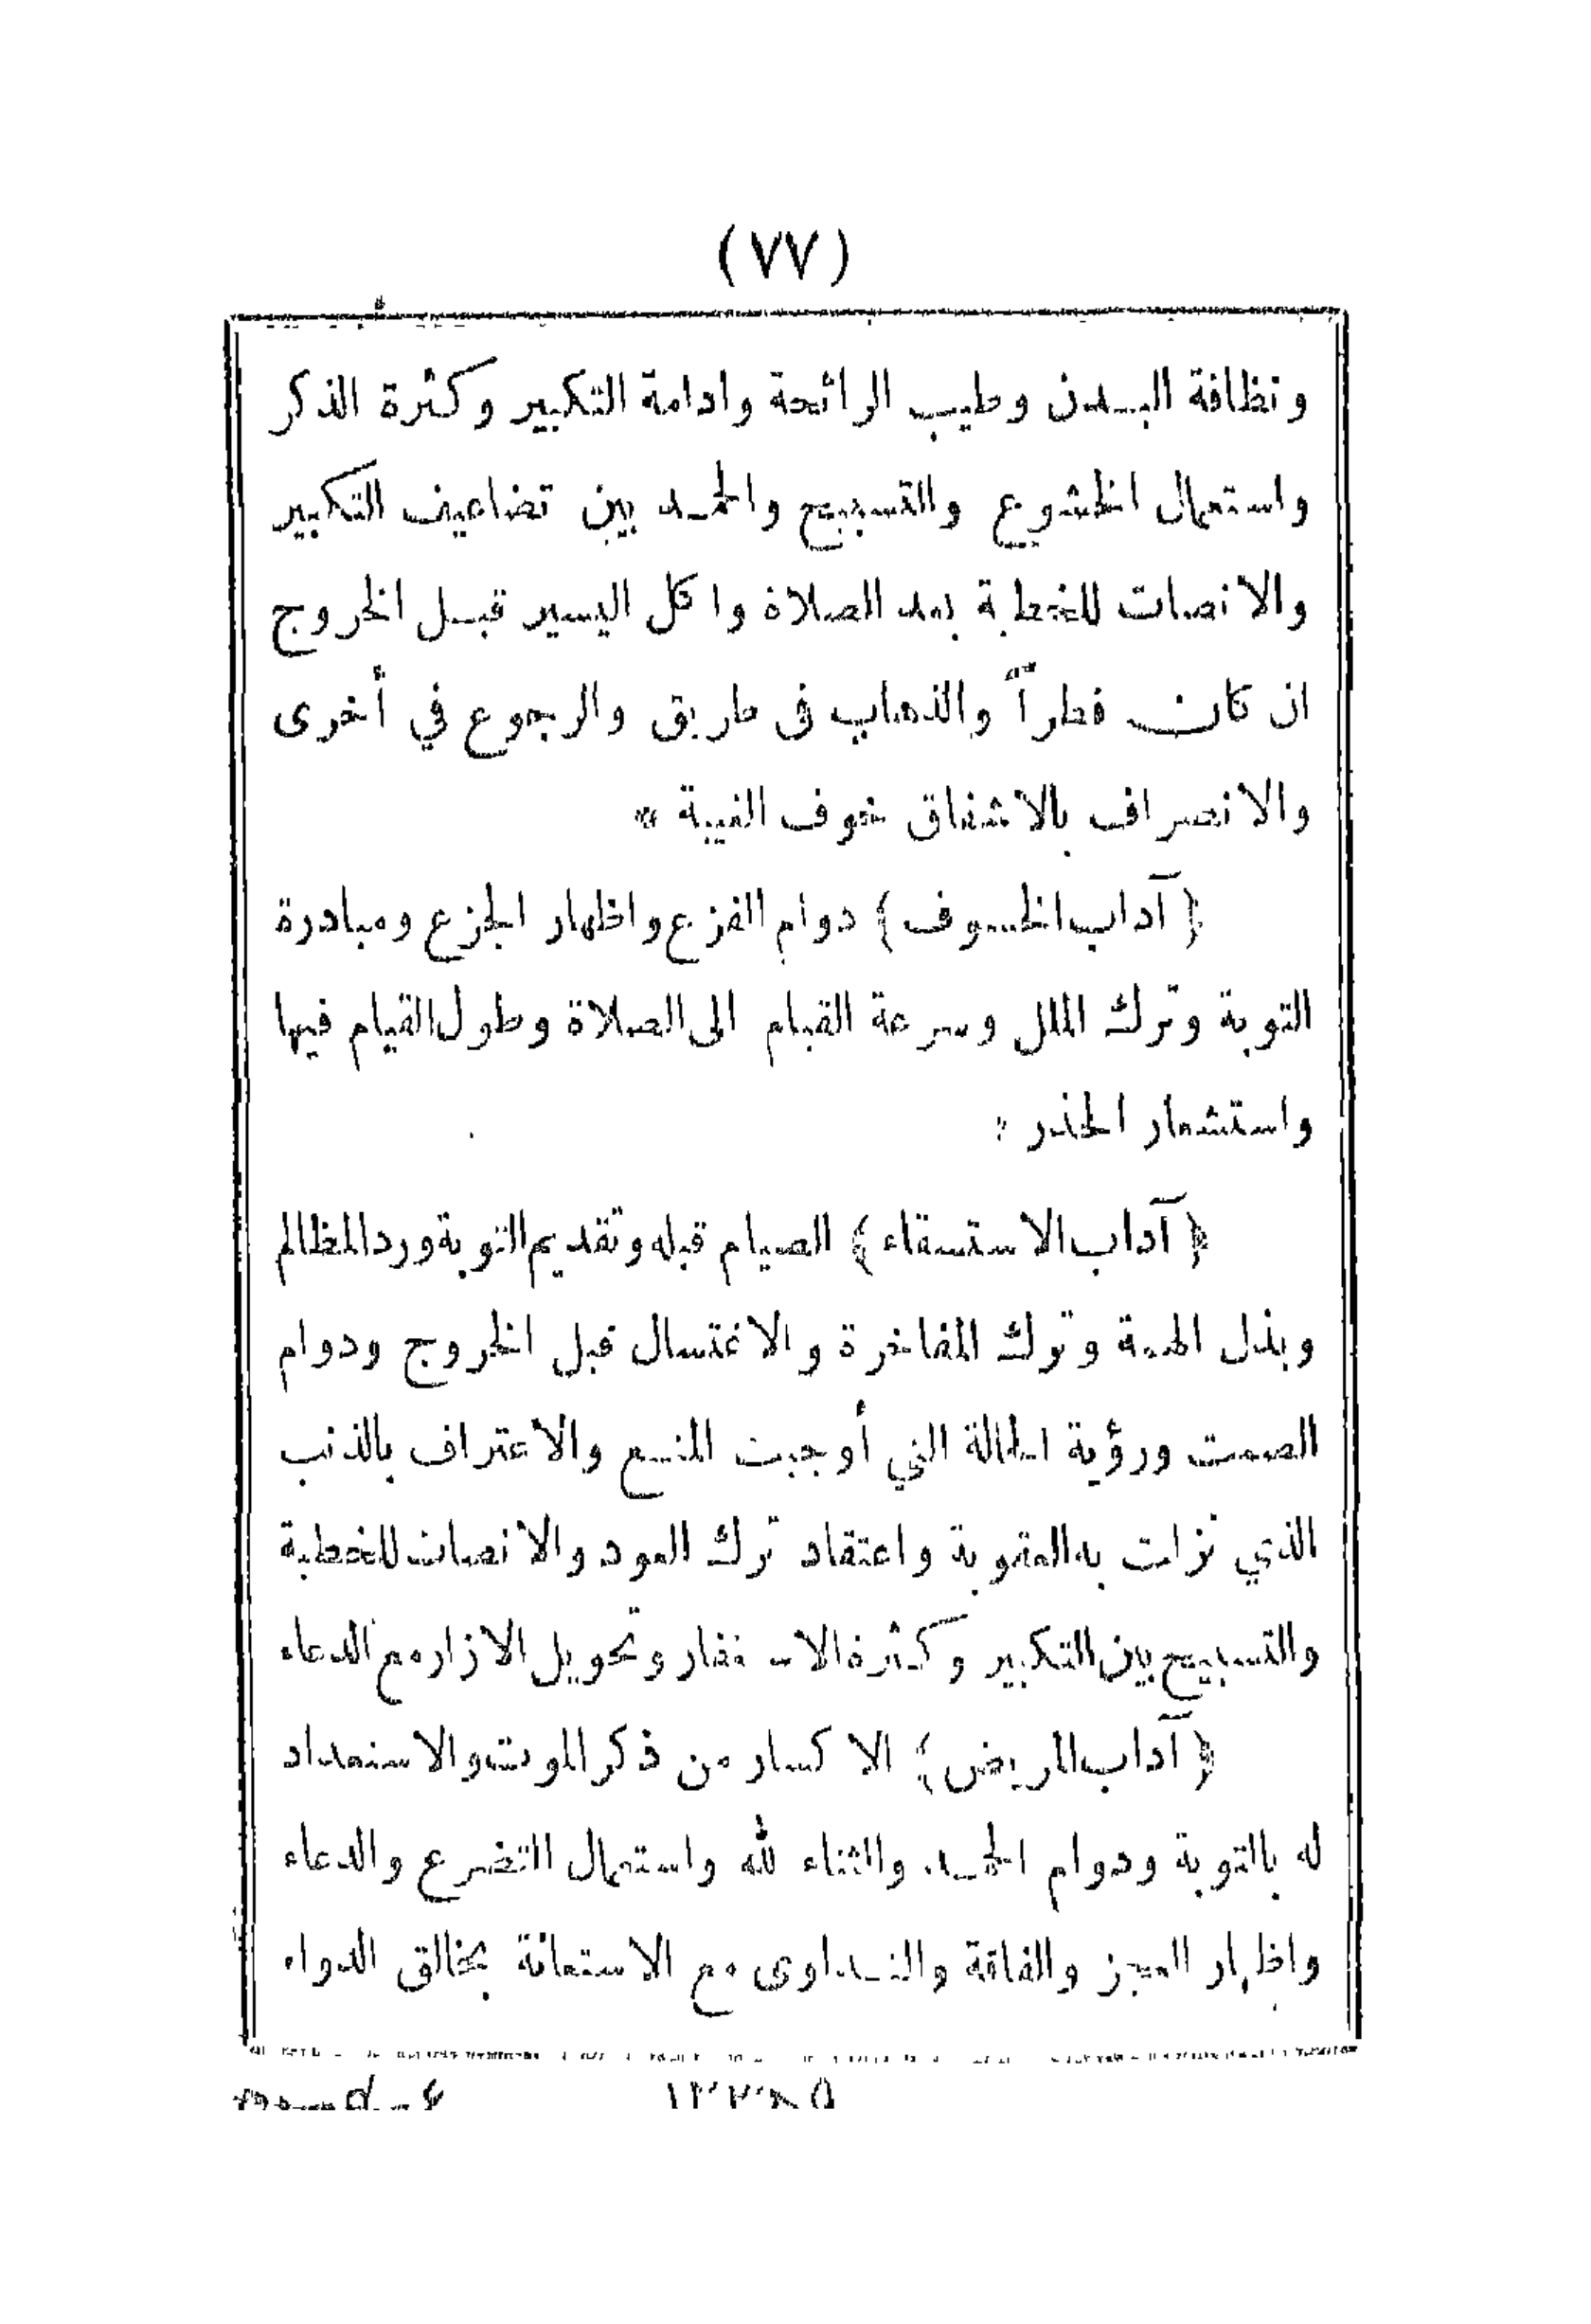 (٧٧)
ونظافة البدن وطيب الرائحة وادامة التكبير وكثرة الذكر
واستعمال الخشوع والتسبيح والحمد بين تضاعيف التكبير
والانصات للخطبة بعد الصلاة واكل اليسير قبل الخروج
ان كان فطراً والذهاب في طريق والرجوع في أخرى
والانصراف بالاشفاق خوف الغيبة *
﴿ آداب الخسوف ﴾ دوام الفزع واظهار الجزع ومبادرة
التوبة وترك الملل وسرعة القيام الى الصلاة وطول القيام فيها
واستشعار الحذر *
﴿ آداب الاستسقاء ﴾ الصيام قبله وتقديم التوبة ورد المظالم
وبذل الهمة وترك المفاخرة والاغتسال قبل الخروج ودوام
الصمت ورؤية الحالة التي أوجبت المنع والاعتراف بالذنب
الذي نزلت به العقوبة واعتقاد ترك العود والانصات للخطبة
والتسبيح بين التكبير وكثرة الاستغفار وتحويل الازار مع الدعاء
﴿ آداب المريض ﴾ الاكسار من ذكر الموت والاستعداد
له بالتوبة ودوام الحمد والثناء لله واستعمال التضرع والدعاء
واظهار العجز والفاقة والتداوى مع الاستعانة بخالق الدواء